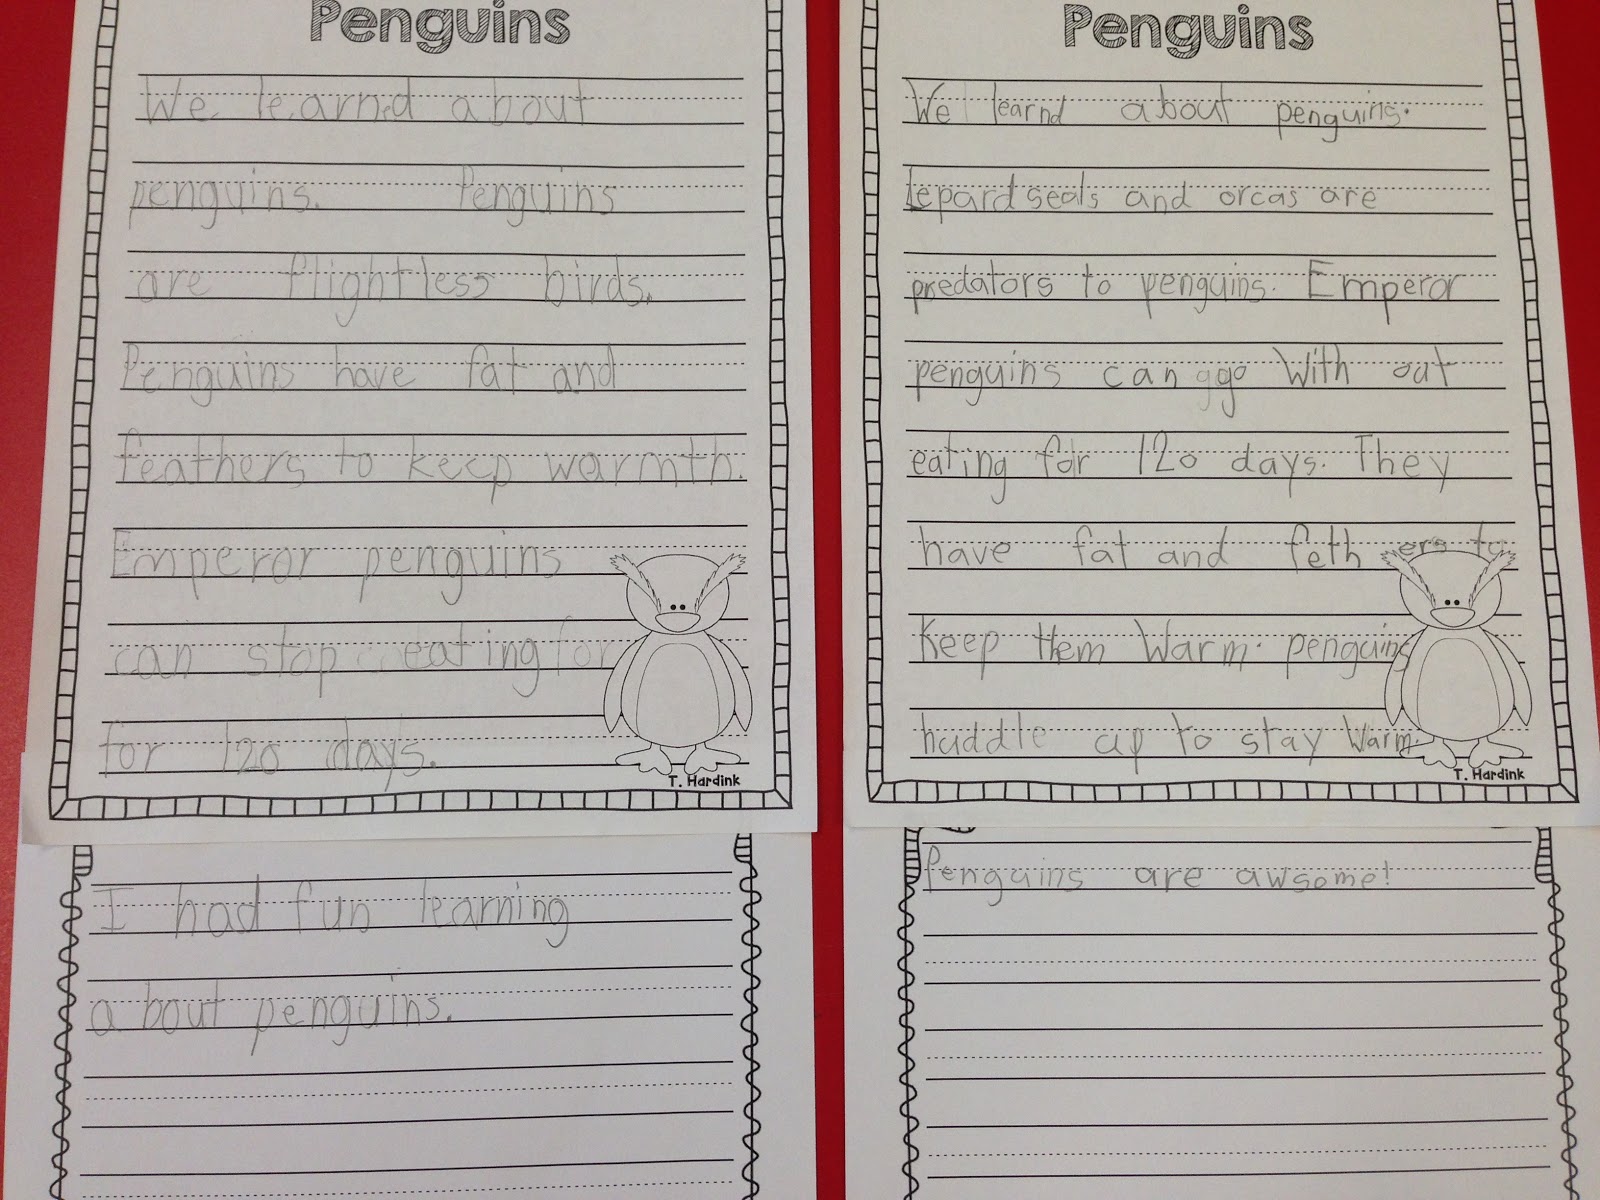 Penguins
We learned about
penguins. Penguins
are flightless birds.
Penguins have fat and
feathers to keep warmth.
Emperor penguins
can stop eating for
for 120 days.
T. Hardink
I had fun learning
about penguins.
Penguins
We learnd about penguins.
lepard seals and orcas are
predators to penguins. Emperor
penguins can ggo With out
eating for 120 days. They
have fat and feth ers to
Keep them Warm. penguins
huddle up to stay Warm.
T. Hardink
Penguins are awsome!